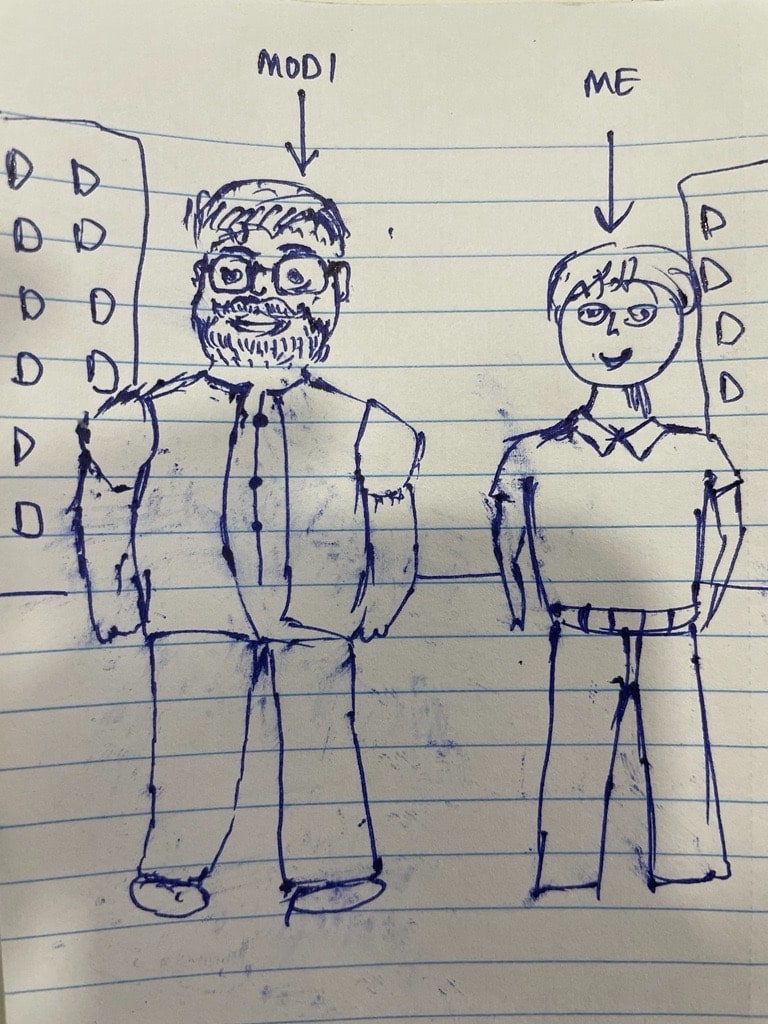 MODI
ME